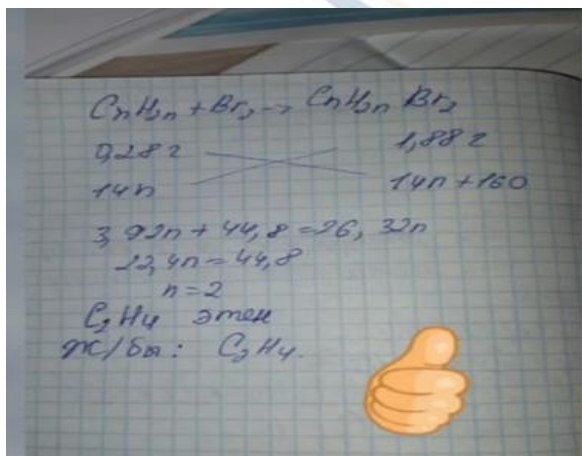 CnH2n + Br2 → CnH2n Br2
0,28 г 1,88 г
14n 14n + 160
3,92n + 44,8 = 26,32n
22,4n = 44,8
n = 2
C2H4 этен
Ж/бы: C2H4.